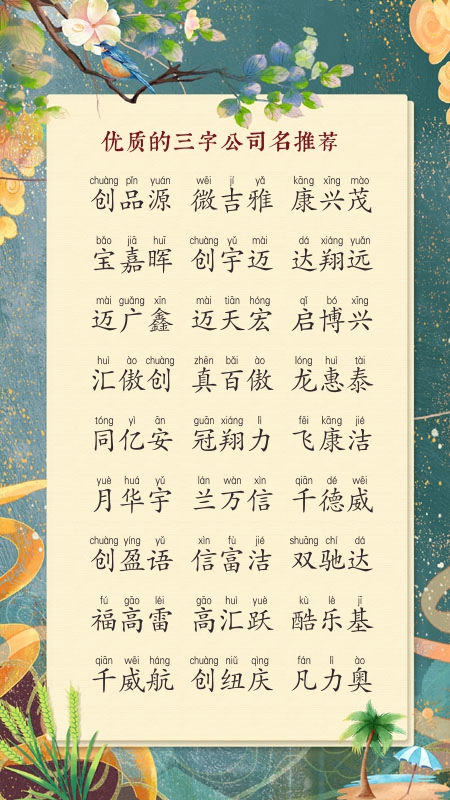 优质的三字公司名推荐
chuàng pǐn yuán wēi jí yǎ kāng xīng mào
创品源 微吉雅 康兴茂
bǎo jiā huī chuàng yǔ mài dá xiáng yuǎn
宝嘉晖 创宇迈 达翔远
mài guǎng xīn mài tiān hóng qǐ bó xīng
迈广鑫 迈天宏 启博兴
huì ào chuàng zhēn bǎi ào lóng huì tài
汇傲创 真百傲 龙惠泰
tóng yì ān guān xiáng lì fēi kāng jié
同亿安 冠翔力 飞康洁
yuè huá yǔ lán wàn xìn qiān dé wēi
月华宇 兰万信 千德威
chuàng yíng yǔ xìn fù jié shuāng chí dá
创盈语 信富洁 双驰达
fú gāo léi gāo huì yuè kù lè jī
福高雷 高汇跃 酷乐基
qiān wēi háng chuàng niǔ qìng fán lì ào
千威航 创纽庆 凡力奥